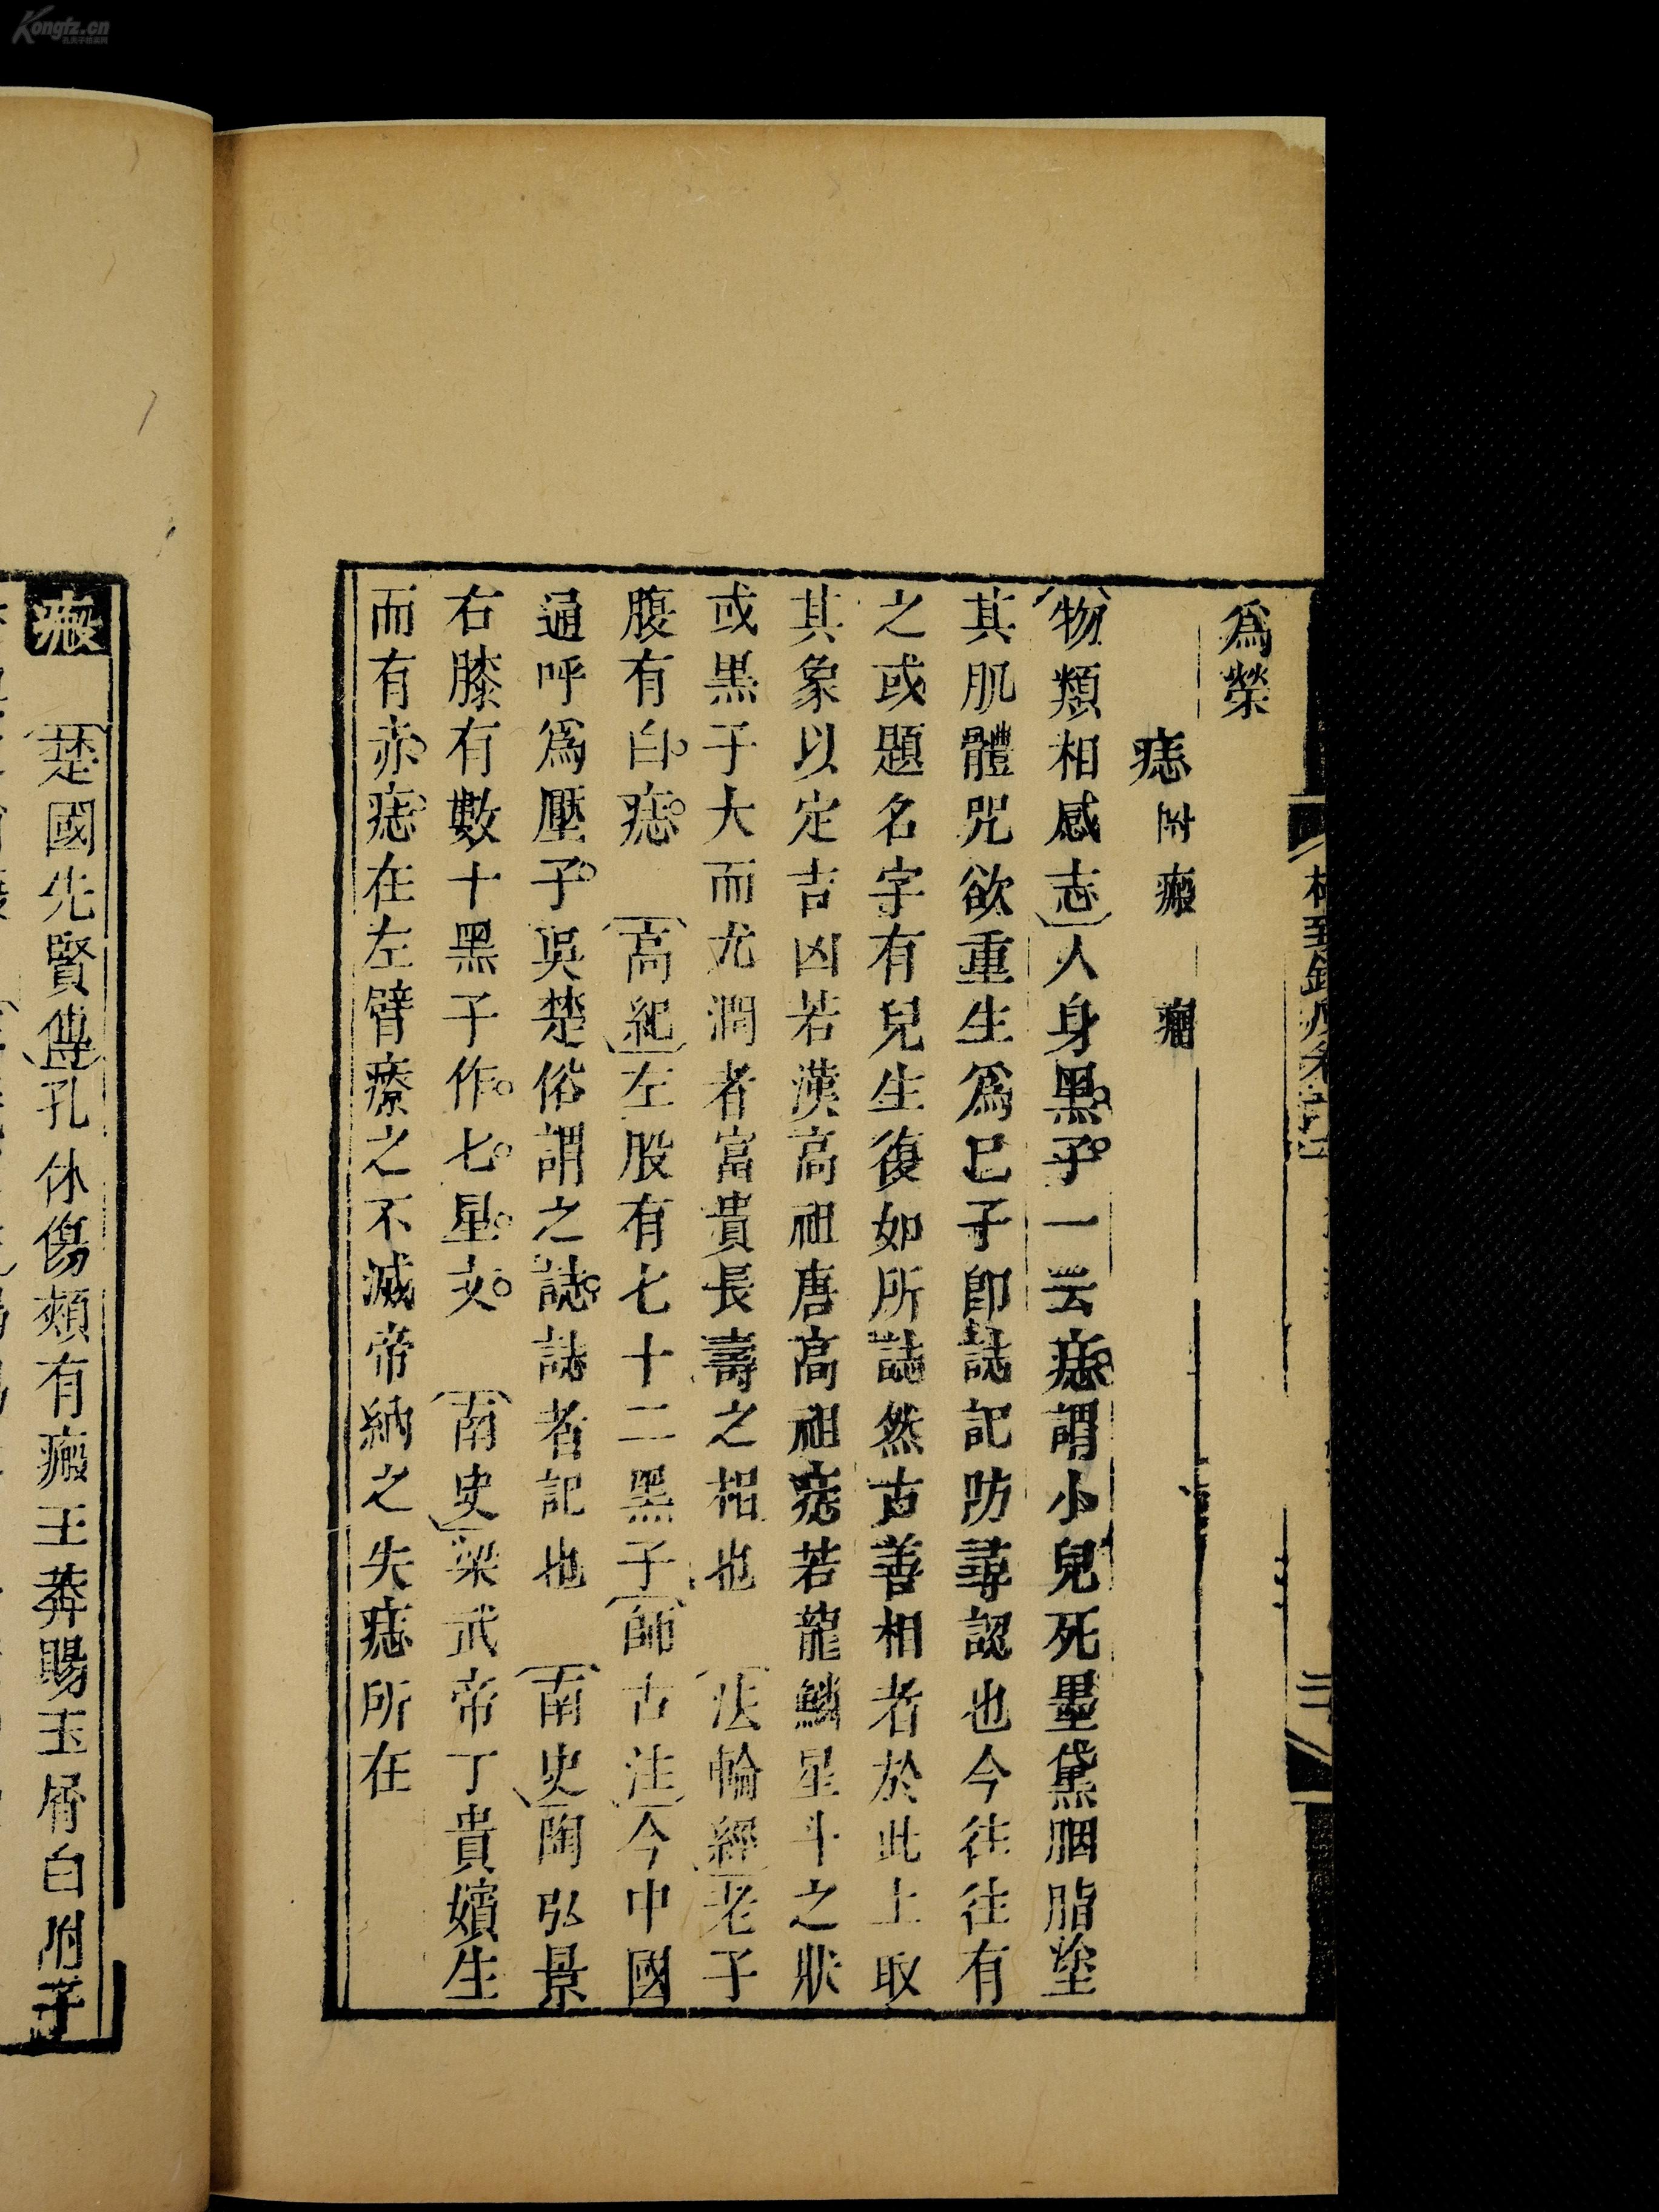 Kongfz.cn
爲榮
痣附瘢 瘤
物類相感志人身黑子一云痣謂小兒死墨黛胭脂塗
其肌體咒欲重生爲己子即誌記防尋認也今往往有
之或題名字有兒生復如所誌然古善相者於此上取
其象以定吉凶若漢高祖唐高祖痣若龍鱗星斗之狀
或黑子大而尤潤者富貴長壽之相也 法輪經老子
腹有白痣 高紀左股有七十二黑子師古注今中國
通呼爲壓子吳楚俗謂之誌誌者記也 南史陶弘景
右膝有數十黑子作七星文 南史梁武帝丁貴嬪生
而有赤痣在左臂療之不滅帝納之失痣所在
瘢 楚國先賢傳孔休傷頰有瘢王莽賜玉屑白附子